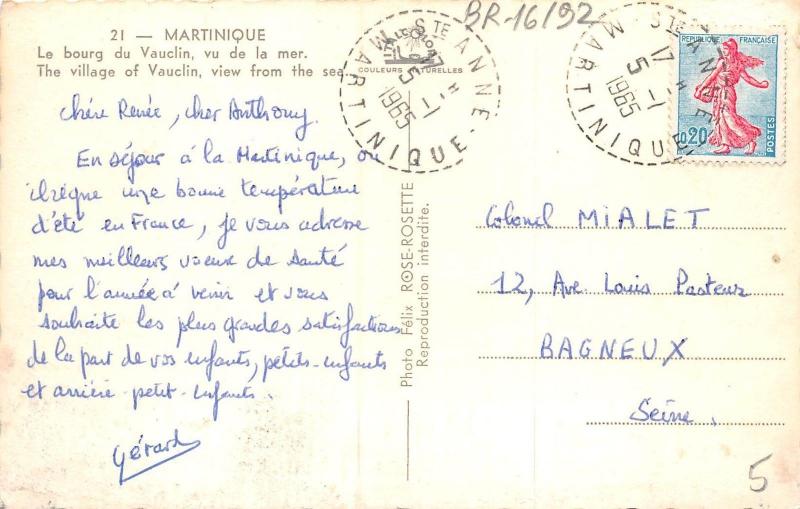 BR-16/92
21 — MARTINIQUE
Le bourg du Vauclin, vu de la mer.
The village of Vauclin, view from the sea.
COULEURS NATURELLES
STE ANNE
17 H
5-1
1965
MARTINIQUE
STE ANNE
17 H
5-1
1965
MARTINIQUE
REPUBLIQUE FRANÇAISE
0,20
POSTES
Chère Renée, cher Anthony.
En séjour à la Martinique, où
il règne une bonne température
d'été en France, je vous adresse
mes meilleurs voeux de santé
pour l'année à venir et vous
souhaite les plus grandes satisfactions
de la part de vos enfants, petits-enfants
et arrière-petit-enfants.
Gérard
Photo Félix ROSE-ROSETTE
Reproduction interdite.
Colonel MIALET
12, Ave Louis Pasteur
BAGNEUX
Seine.
5